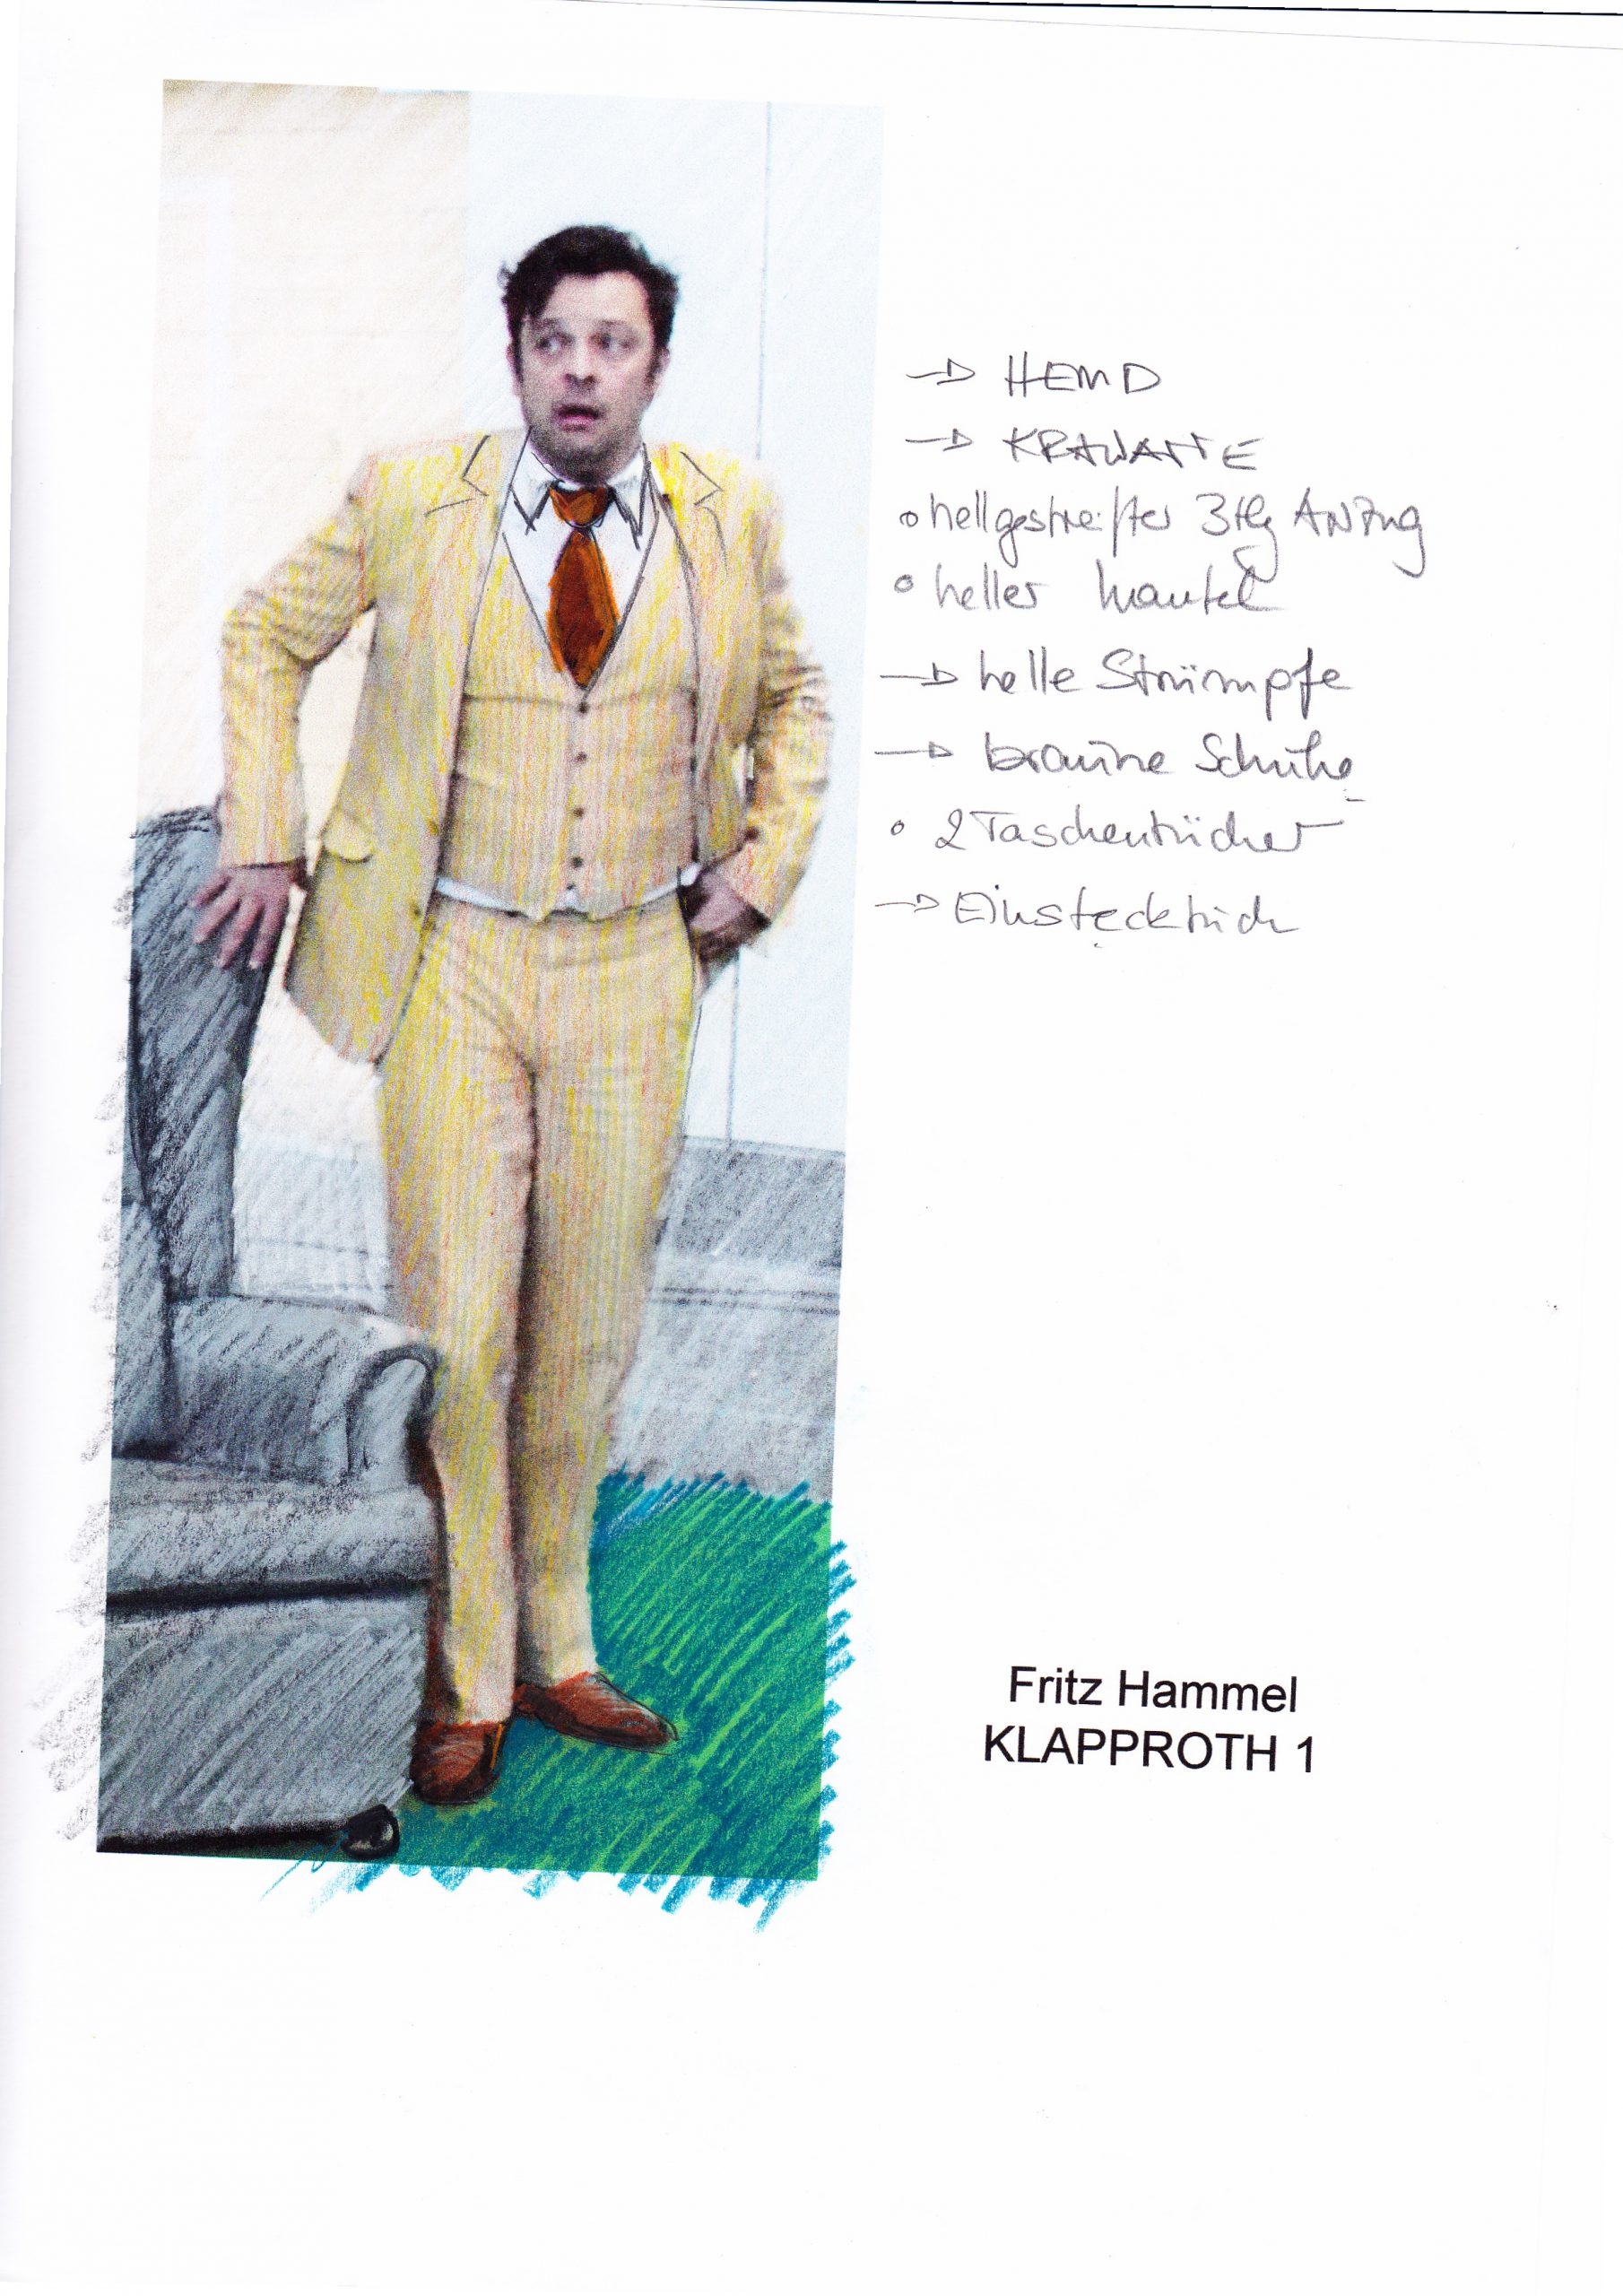 → HEMD
→ KRAWATTE
o hellgestreifter 3tlg ANZug
o heller Mantel
→ helle Strümpfe
→ braune Schuhe
o 2 Taschentücher
→ Einstecktuch
Fritz Hammel
KLAPPROTH 1